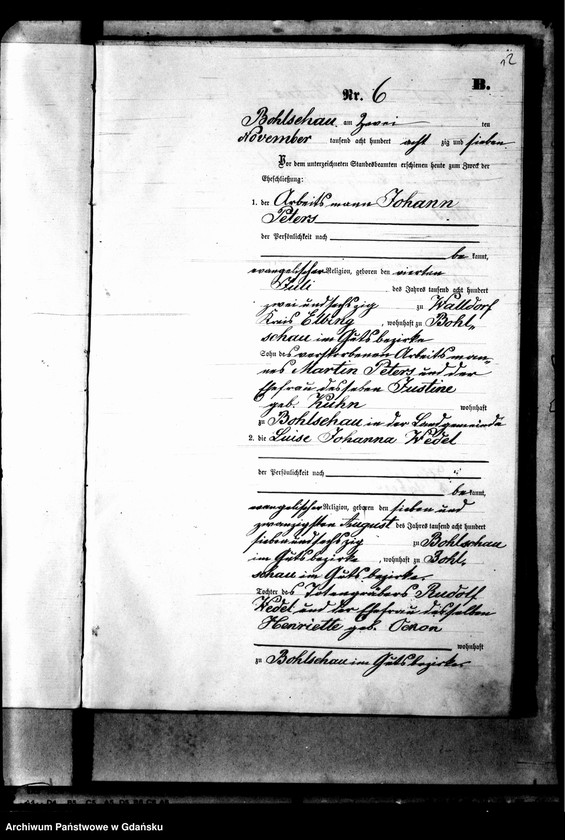 B.
Nr. 6
Bohlschau am Zwei ten
November tausend acht hundert acht zig und sieben.
Vor dem unterzeichneten Standesbeamten erschienen heute zum Zweck der
Eheschließung:
1. der Arbeitsmann Johann
Peters
der Persönlichkeit nach
be kannt,
evangelischer Religion, geboren den vierten
Juli des Jahres tausend acht hundert
zwei und sechszig zu Walldorf
Kreis Elbing, wohnhaft zu Bohl-
schau im Gutsbezirke
Sohn des verstorbenen Arbeitsman-
nes Martin Peters und der
Ehefrau desselben Justine
geb. Kuhn wohnhaft
zu Bohlschau in der Landgemeinde
2. die Luise Johanna Wedel
der Persönlichkeit nach
be kannt,
evangelischer Religion, geboren den sieben und
zwanzigsten August des Jahres tausend acht hundert
sieben und sechszig zu Bohlschau
im Gutsbezirke, wohnhaft zu Bohl-
schau im Gutsbezirke.
Tochter des Totengräbers Rudolf
Wedel und der Ehefrau desselben
Henriette geb.
wohnhaft
zu Bohlschau im Gutsbezirke.
Archiwum Państwowe w Gdańsku